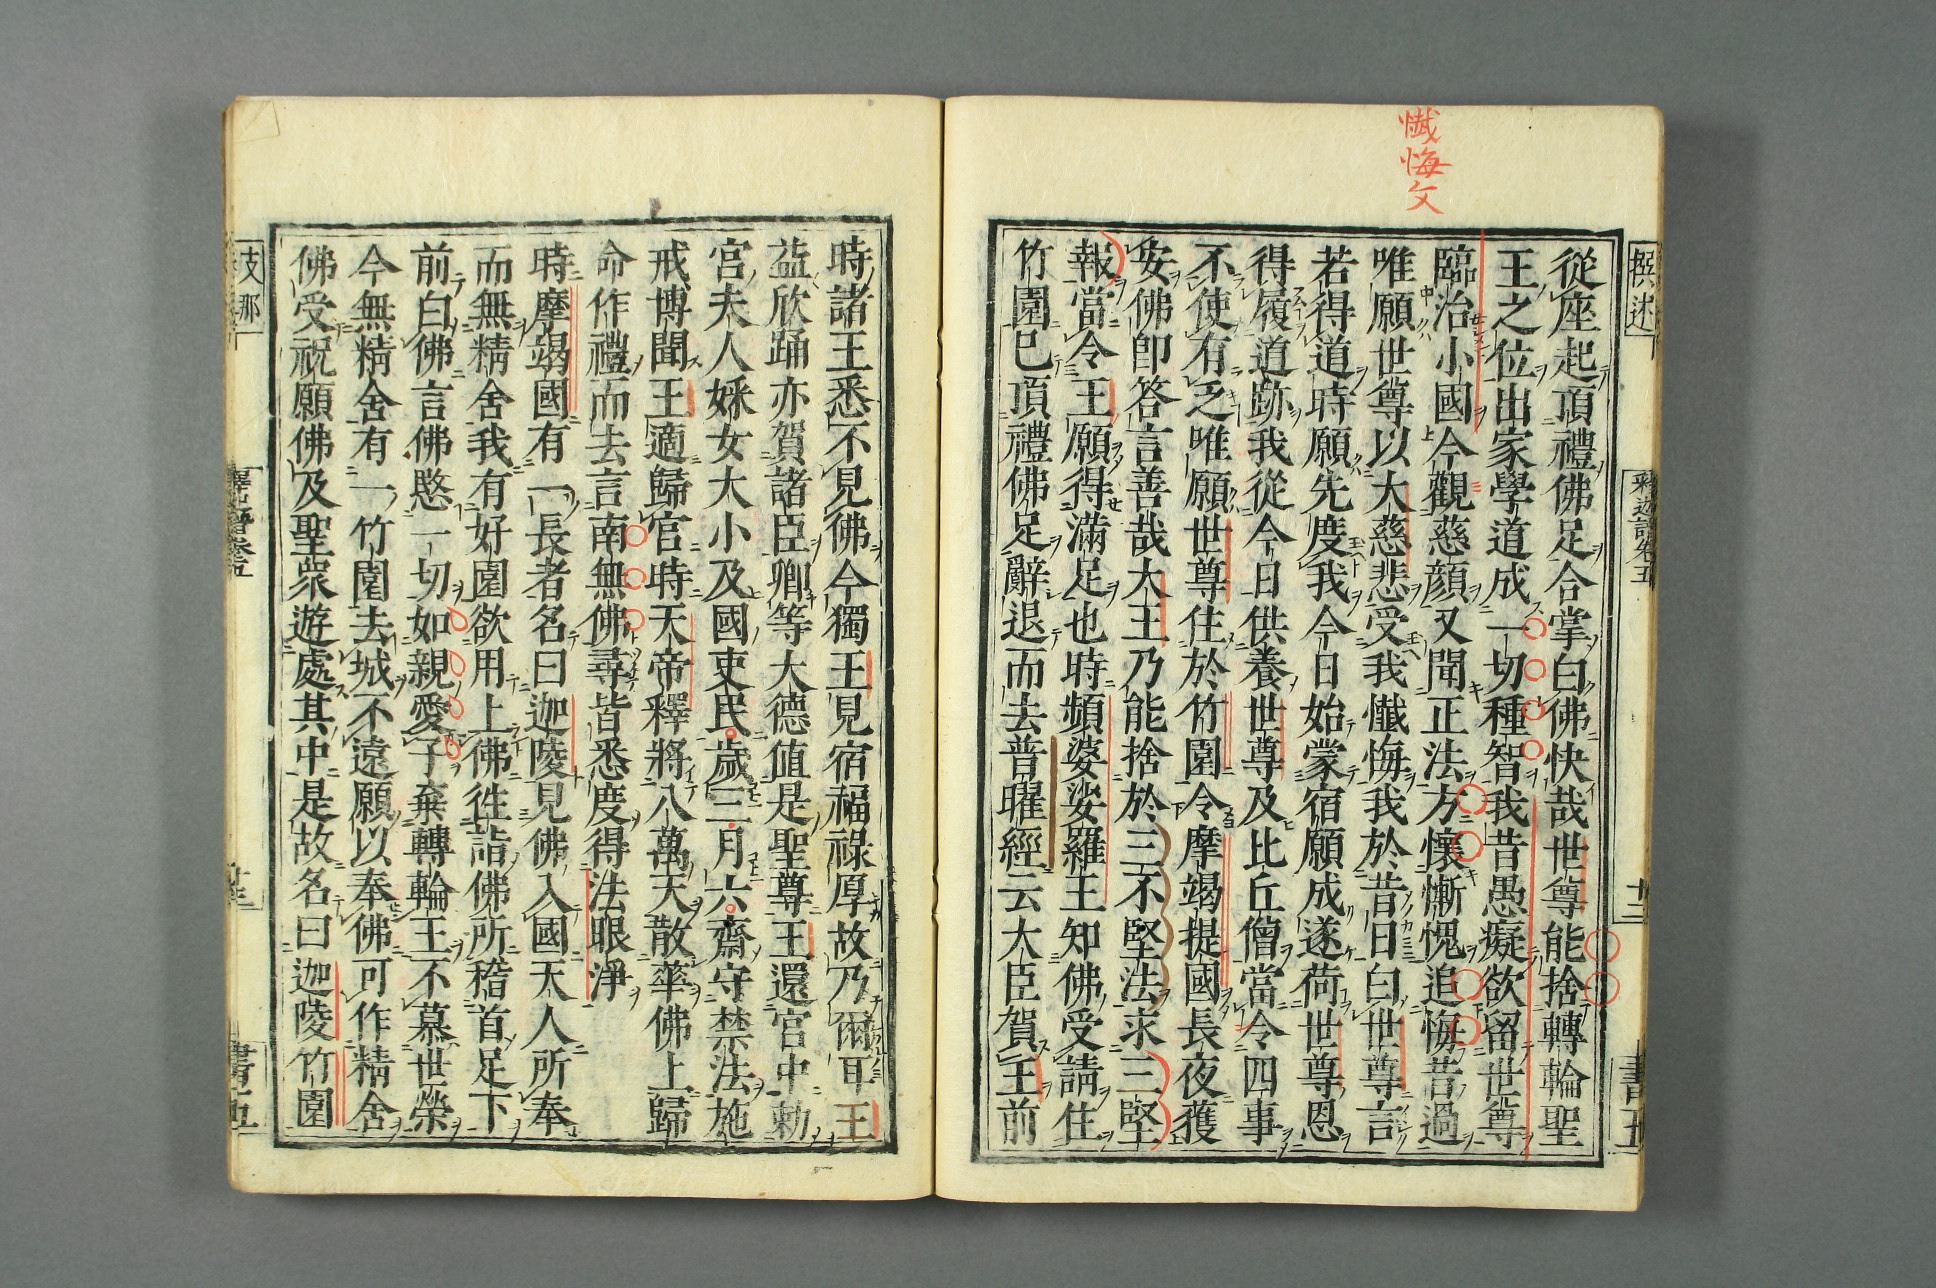 懺悔文
從座起頂禮佛足合掌白佛快哉世尊能捨轉輪聖
王之位出家學道成一切種智我昔愚癡欲留世尊
臨治小國今觀慈顏又聞正法方懷慚愧追悔昔過
唯願世尊以大慈悲受我懺悔我於昔日白世尊言
若得道時願先度我今日始蒙宿願成遂荷世尊恩
得履道跡我從今日供養世尊及比丘僧當令四事
不使有乏唯願世尊住於竹園令摩竭提國長夜獲
安佛即答言善哉大王乃能捨於三不堅法求三堅
報當令王願得滿足也時頻婆娑羅王知佛受請住
竹園已頂禮佛足辭退而去普曜經云大臣賀王前
時諸王悉不見佛今獨王見宿福祿厚故乃爾耳王
益欣踊亦賀諸臣卿等大德值是聖尊王還宮中勑
宮夫人婇女大小及國吏民歲三月六齋守禁法施
戒博聞王適歸宮時天帝釋將八萬天散華佛上歸
命作禮而去言南無佛尋皆悉度得法眼淨
時摩竭國有一長者名曰迦陵見佛入國天人所奉
而無精舍我有好園欲用上佛徃詣佛所稽首足下
前白佛言佛愍一切如親愛子棄轉輪王不慕世榮
今無精舍有一竹園去城不遠願以奉佛可作精舍
佛受祝願佛及聖衆遊處其中是故名曰迦陵竹園